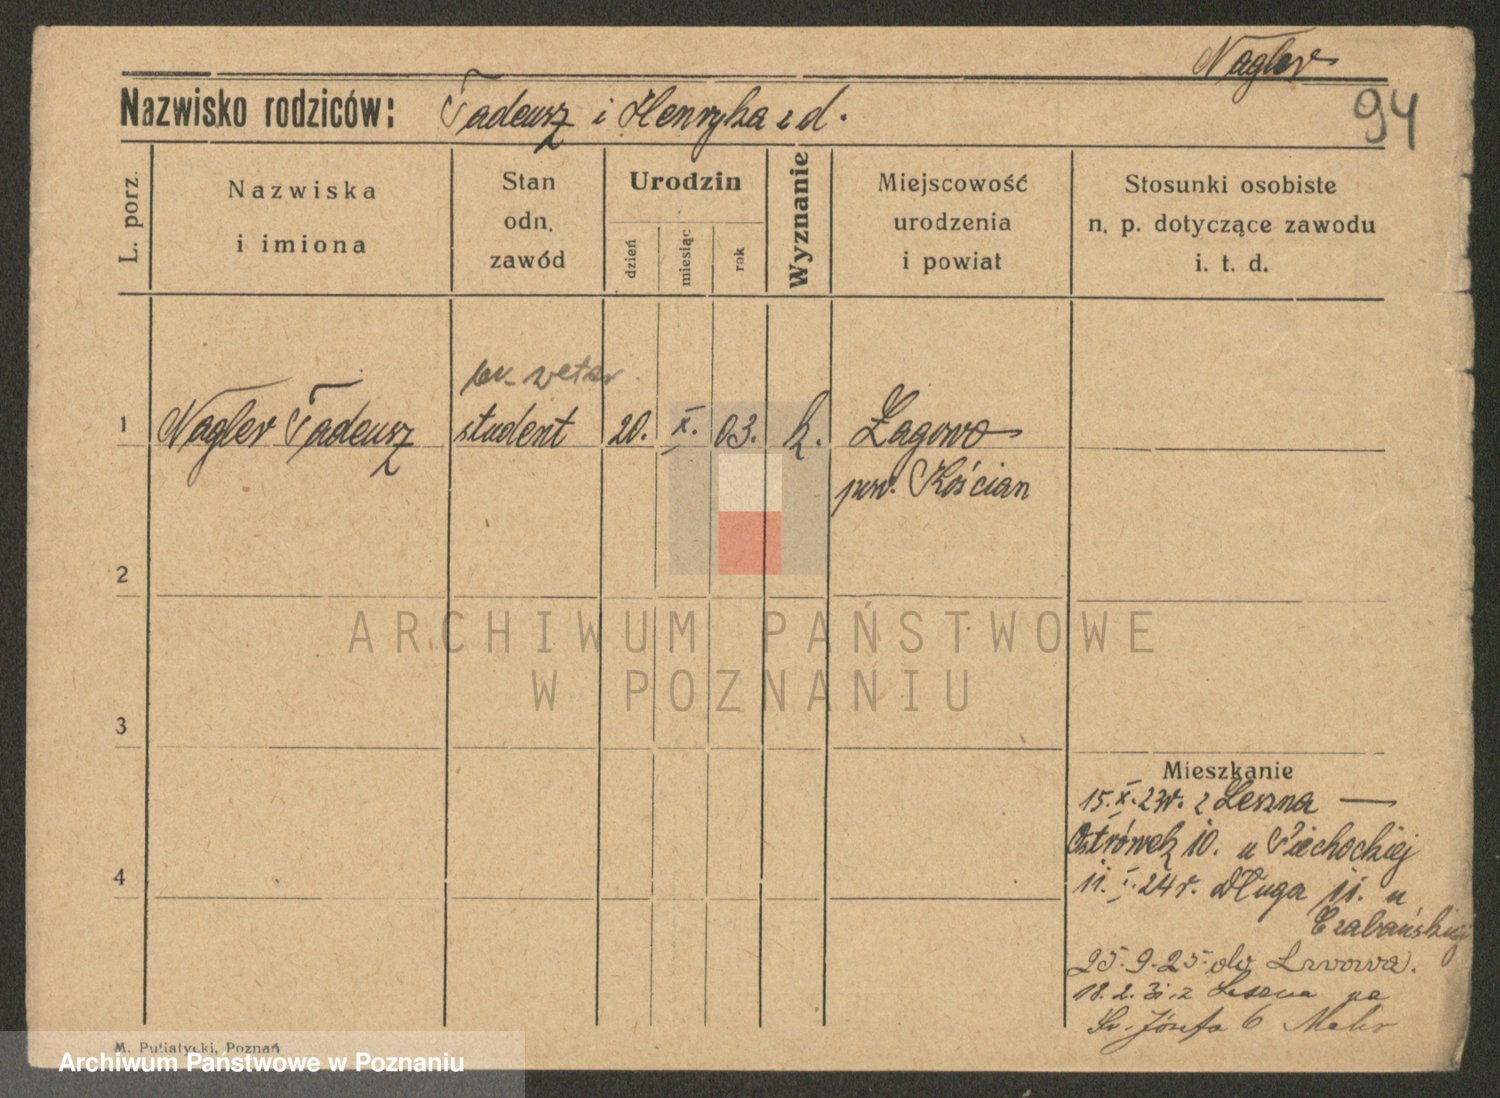 Nagler
Nazwisko rodziców: Tadeusz i Henryka z d.
94
L. porz.
Nazwiska
i imiona
Stan
odn.
zawód
Urodzin
dzień
miesiąc
rok
Wyznanie
Miejscowość
urodzenia
i powiat
Stosunki osobiste
n. p. dotyczące zawodu
i. t. d.
1
Nagler Tadeusz
student
20. X. 03. k.
Łagowo
pow. Kościan
2
3
4
ARCHIWUM PAŃSTWOWE
W POZNANIU
Mieszkanie
15.X.23r. z Leszna —
Ostrówek 10. u Piechockiej
11. I. 24r. Długa 11. u
Czabańskiej
25.9.25 do Lwowa.
18.2.31. z Leszna na
Św. Józefa 6
M. Putiatycki, Poznań
Archiwum Państwowe w Poznaniu